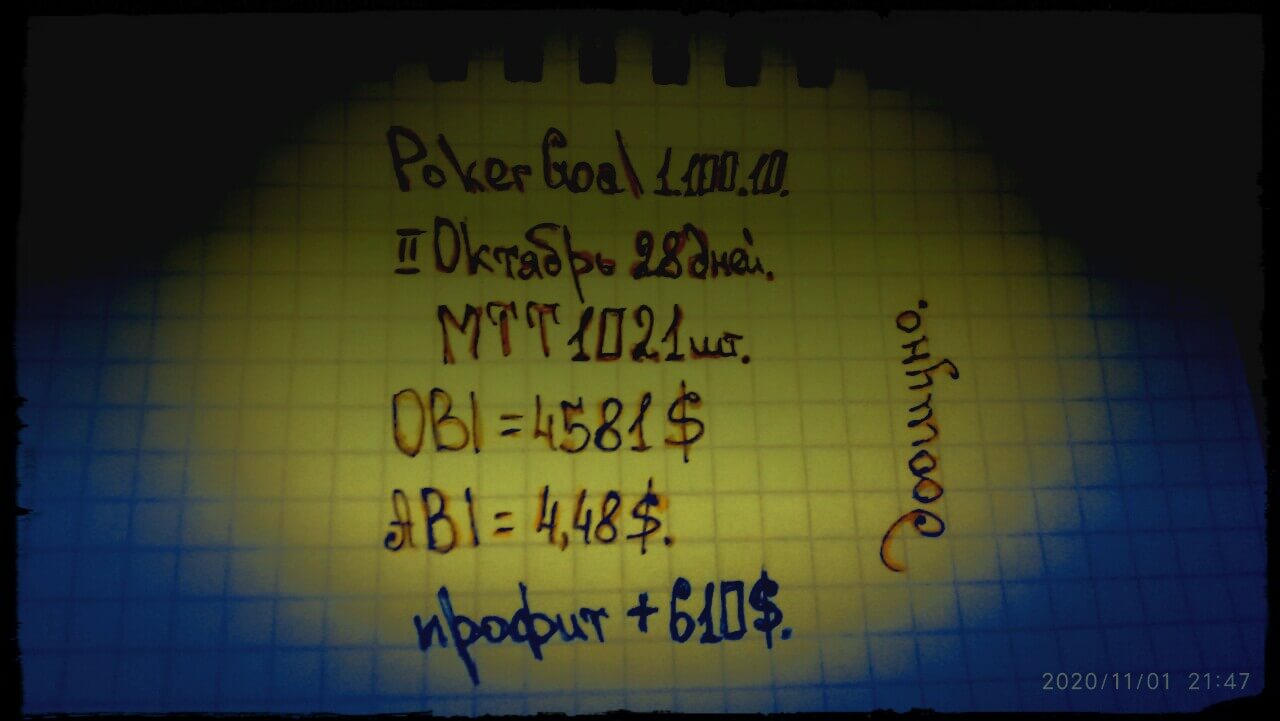 Poker Goal 1.100.10.
II Октябрь 28 дней.
МТТ 1021 шт.
OBI = 4581 $
ABI = 4,48 $.
профит + 610 $.
2020/11/01 21:47